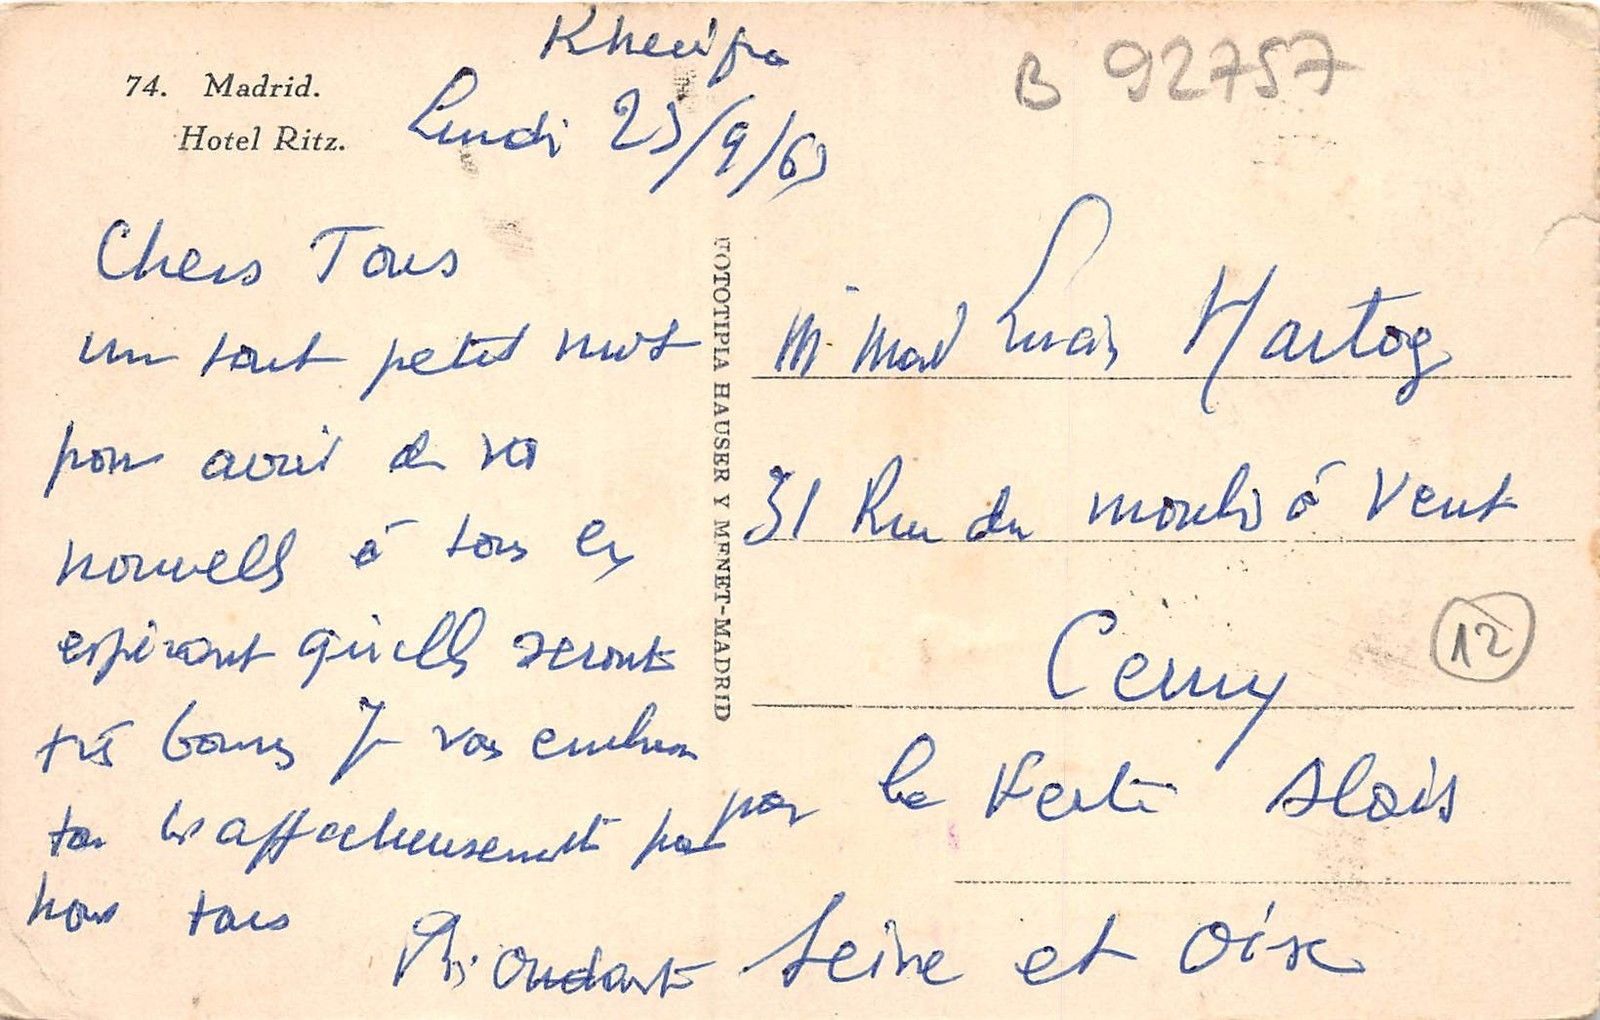 74. Madrid.
Hotel Ritz.
Lundi 23/9/63
Chers Tous
un tout petit mot
pour avoir de vos
nouvells à tous en
espérant qu'ells seront
très bonnes Je vous embrasse
tous affectueusement pour
nous tous
FOTOTIPIA HAUSER Y MENET-MADRID
B 92757
M. Mad Hartog
31 Rue du moulin à Vent
Cerny
12
par La Ferté Alais
Seine et Oise